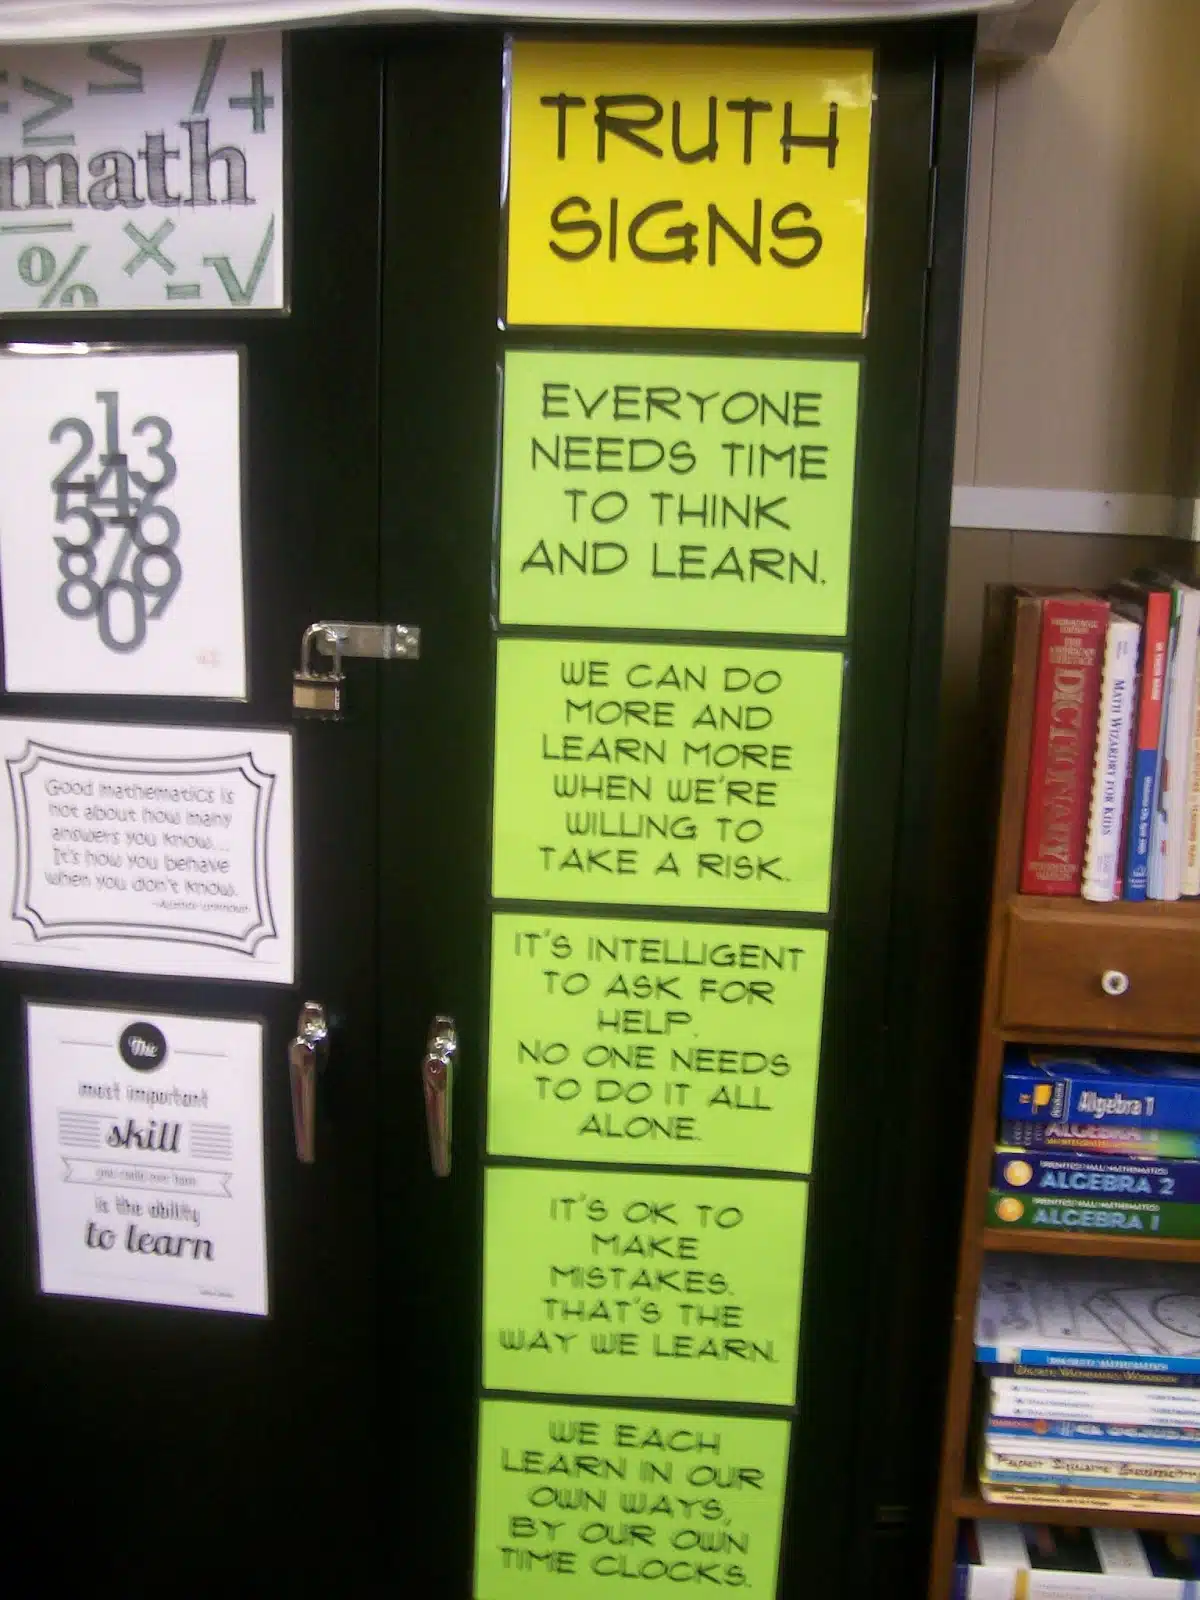 math
1
2 3
4
5 6
7
8 9
0
Good mathematics is
not about how many
answers you know...
It's how you behave
when you don't know.
~Author unknown
The
most important
skill
you could ever have
is the ability
to learn
TRUTH
SIGNS
EVERYONE
NEEDS TIME
TO THINK
AND LEARN.
WE CAN DO
MORE AND
LEARN MORE
WHEN WE'RE
WILLING TO
TAKE A RISK.
IT'S INTELLIGENT
TO ASK FOR
HELP.
NO ONE NEEDS
TO DO IT ALL
ALONE.
IT'S OK TO
MAKE
MISTAKES.
THAT'S THE
WAY WE LEARN.
WE EACH
LEARN IN OUR
OWN WAYS,
BY OUR OWN
TIME CLOCKS.
DICTIONARY
MATH WIZARDRY FOR KIDS
Algebra 1
ALGEBRA 1
PRENTICE HALL MATHEMATICS
ALGEBRA 2
PRENTICE HALL MATHEMATICS
ALGEBRA 1
Paper Square Geometry